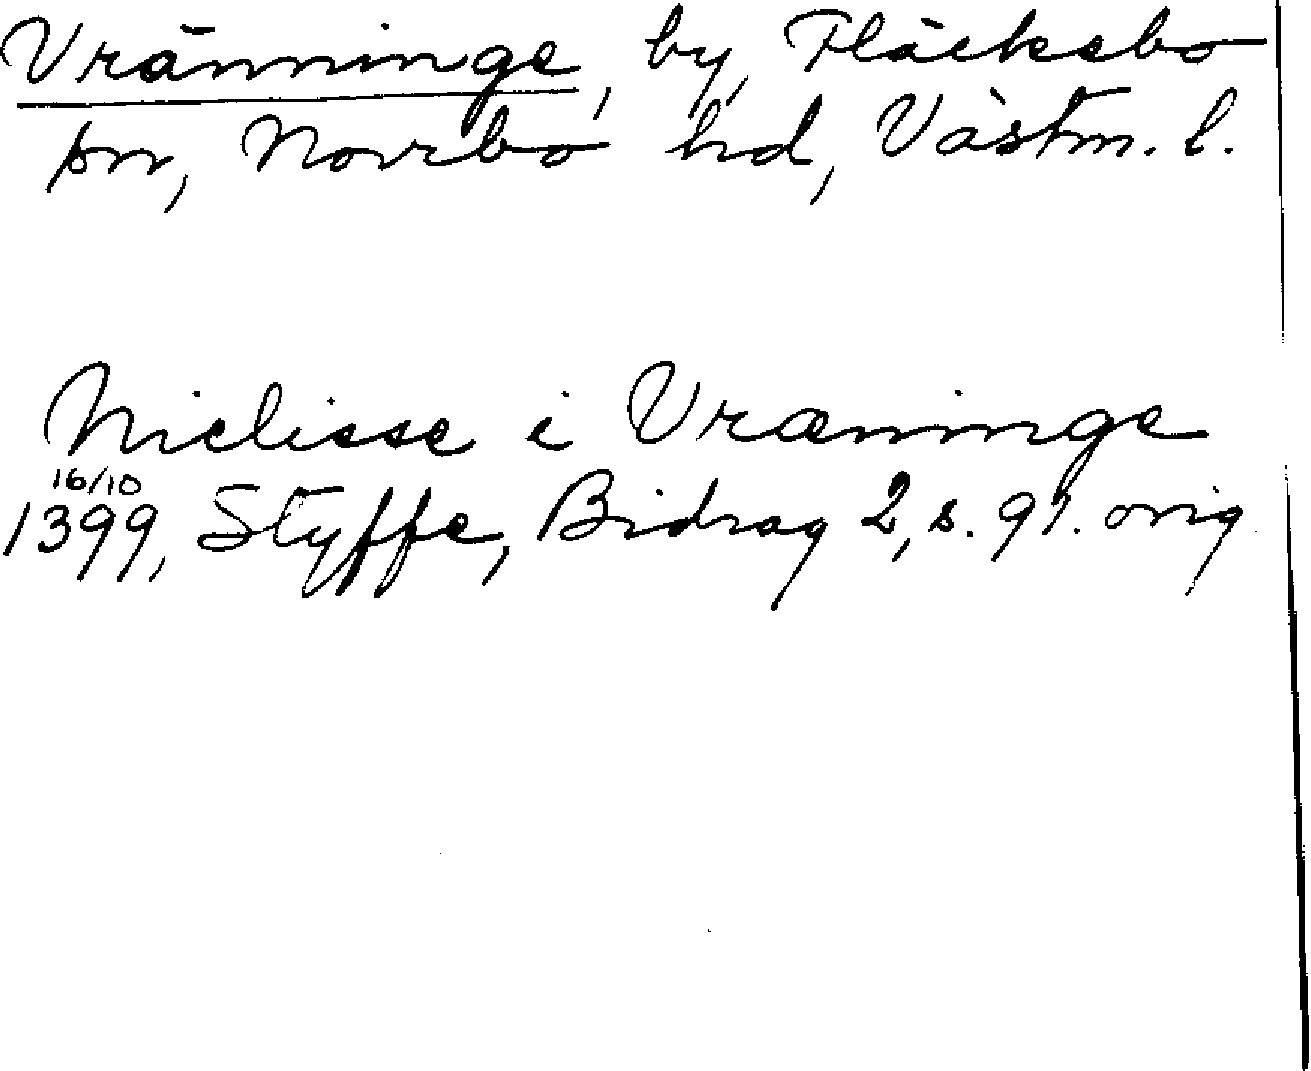 Vränninge, by, Fläckebo
sn, Norrbo hd, Västm. l.
Niclisse i Vræninge
16/10
1399, Styffe, Bidrag 2, s. 91. orig